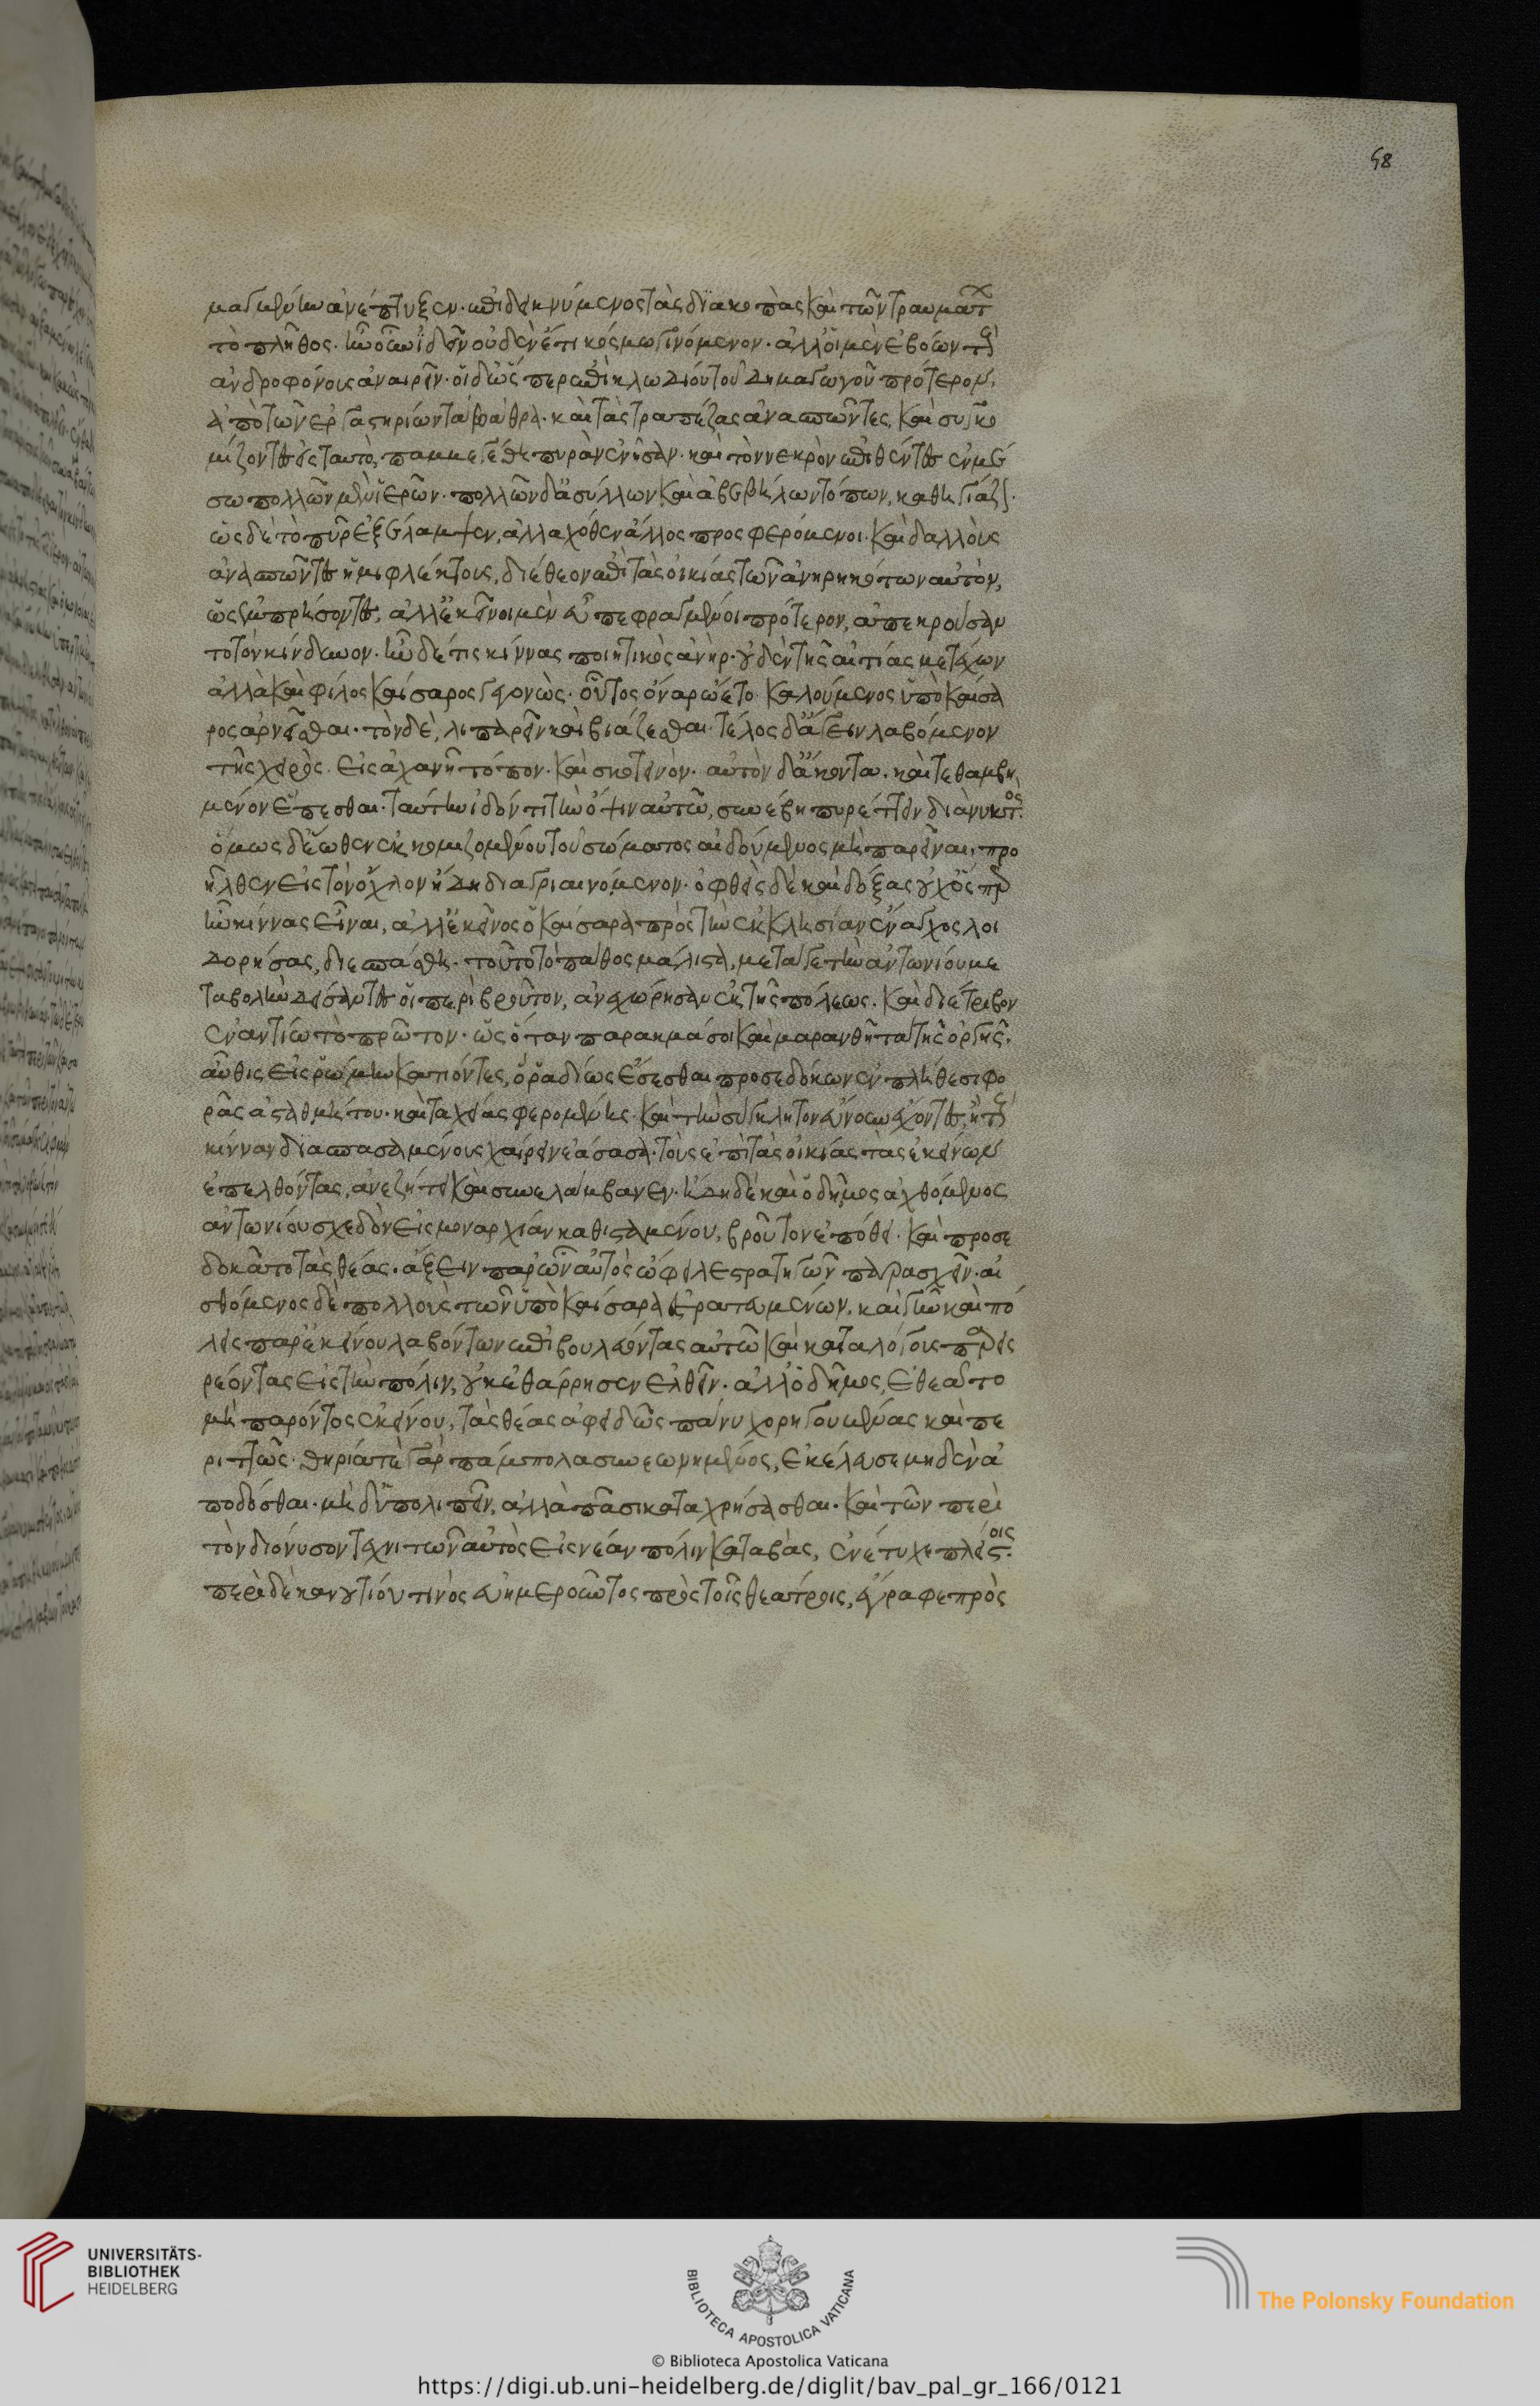 μαγμένην ἀνέπτυξεν· ἐπιδεικνύμενος τὰς διακοπὰς καὶ τῶν τραυμάτων
τὸ πλῆθος. ἦν οὖν ἰδεῖν οὐδὲν ἔτι κόσμω γινόμενον· ἀλλ' οἱ μὲν ἐβόων τοὺς
ἀνδροφόνους ἀναιρεῖν· οἱ δ' ὥσπερ ἐπὶ κλωδίου τοῦ δημαγωγοῦ πρότερον,
ἀπὸ τῶν ἐργαστηρίων τὰ βάθρα· καὶ τὰς τραπέζας ἀνασπῶντες, καὶ συγκο
μίζοντες εἰς ταυτὸ, παμμεγέθη πυρὰν ἔνησαν· καὶ τὸν νεκρὸν ἐπιθέντες ἐν μέ
σω πολλῶν μὲν ἱερῶν· πολλῶν δ' ἀσύλλων καὶ ἀβεβήλων τόπων, καθηγίαζον.
ὡς δὲ τὸ πῦρ ἐξέλαμψεν, ἀλλαχόθεν ἄλλος προσφερόμενοι· καὶ δαλλοὺς
ἀνασπῶντες ἡμιφλέκτους, διέθεον ἐπὶ τὰς οἰκίας τῶν ἀνηρηκότων αὐτὸν,
ὡς ἐμπρήσοντες, ἀλλ' ἐκεῖνοι μὲν εὖ πεφραγμένοι πρότερον, ἀπεκρούσαν
το τὸν κίνδυνον· ἦν δέ τις κίννας ποιητικὸς ἀνὴρ· οὐδὲν τῆς αἰτίας μετέχων
ἀλλὰ καὶ φίλος καίσαρος γεγονώς· οὗτος ὄναρ ὤετο καλούμενος ὑπὸ καίσα
ρος ἀρνεῖσθαι· τὸν δὲ, λιπαρεῖν καὶ βιάζεσθαι· τέλος δ' ἄγειν λαβόμενον
τῆς χειρὸς. εἰς ἀχανῆ τόπον· καὶ σκοτεινόν· αὐτὸν δ' ἄκοντα· καὶ τεθαμβη
μένον ἕπεσθαι. ταύτην ἰδόντι τὴν ὄψιν αὐτῶ, συνέβη πυρέττειν διὰ νυκτός.
ὅμως δ' ἕωθεν ἐκκομιζομένου τοῦ σώματος αἰδούμενος μὴ παρεῖναι, προ
ῆλθεν εἰς τὸν ὄχλον ἤδη διαγριαινόμενον· ὀφθεὶς δὲ καὶ δόξας οὐχ ὅσπερ
ἦν κίννας εἶναι, ἀλλ' ἐκεῖνος ὁ καίσαρα πρὸς τὴν ἐκκλησίαν ἔναγχος λοι
δορήσας, διεσπάσθη. τοῦτο τὸ πάθος μάλιστα, μετά γε τὴν ἀντωνίου με
ταβολὴν δείσαντες οἱ περὶ βροῦτον, ἀνεχώρησαν ἐκ τῆς πόλεως. καὶ διέτριβον
ἐν ἀντίω τὸ πρῶτον· ὡς ὅταν παρακμάσοι καὶ μαρανθῆ τὰ τῆς ὀργῆς.
αὖθις εἰς ῥώμην κατιόντες, ὁ ῥαδίως ἔσεσθαι προσεδόκων ἐν πλήθεσι φο
ρὰς ἀσταθμήτου· καὶ ταχείας φερομένης· καὶ τὴν σύγκλητον εὔνουν ἔχοντες, ἣ τοὺς
κίνναν διασπασαμένους χαίρειν ἐάσασα· τοὺς ἐπὶ τὰς οἰκίας τὰς ἐκείνων
ἐπελθόντας, ἀνεζήτει καὶ συνελάμβανεν. ἤδη δὲ καὶ ὁ δῆμος ἀχθόμενος
ἀντωνίου σχεδὸν εἰς μοναρχίαν καθισταμένου, βροῦτον ἐπόθει. καὶ προσε
δοκᾶτο τὰς θέας· ἄξειν παρὼν αὐτὸς ὤφειλε στρατηγῶν παρασχεῖν· αἰ
σθόμενος δὲ πολλοὺς τῶν ὑπὸ καίσαρα ἐστρατευμένων, καὶ γῆν καὶ πό
λεις παρ' ἐκείνου λαβόντων ἐπιβουλεύοντας αὐτῶ καὶ κατ' ὀλίγους παρεις
ρέοντας εἰς τὴν πόλιν, οὐκ ἐθάρρησεν ἐλθεῖν. ἀλλ' ὁ δῆμος, ἐθεᾶτο
μὴ παρόντος ἐκείνου, τὰς θέας ἀφειδῶς πάνυ χορηγουμένας καὶ πε
ριττῶς· θηρία τὲ γὰρ πάμπολα συνεωνημένος, ἐκέλευσε μηδὲν ἀ
ποδόσθαι· μὴ δ' ὑπολιπεῖν, ἀλλὰ πᾶσι καταχρήσασθαι· καὶ τῶν περὶ
τὸν διόνυσον τεχνιτῶν αὐτὸς εἰς νεάν πόλιν καταβὰς, ἐνέτυχε πλείστοις.
περὶ δὲ κανουτίου τινὸς εὐημεροῦντος πρὸς τοῖς θεάτροις, ἔγραφε πρὸς
58
UNIVERSITÄTS-
BIBLIOTHEK
HEIDELBERG
BIBLIOTECA APOSTOLICA VATICANA
The Polonsky Foundation
© Biblioteca Apostolica Vaticana
https://digi.ub.uni-heidelberg.de/diglit/bav_pal_gr_166/0121